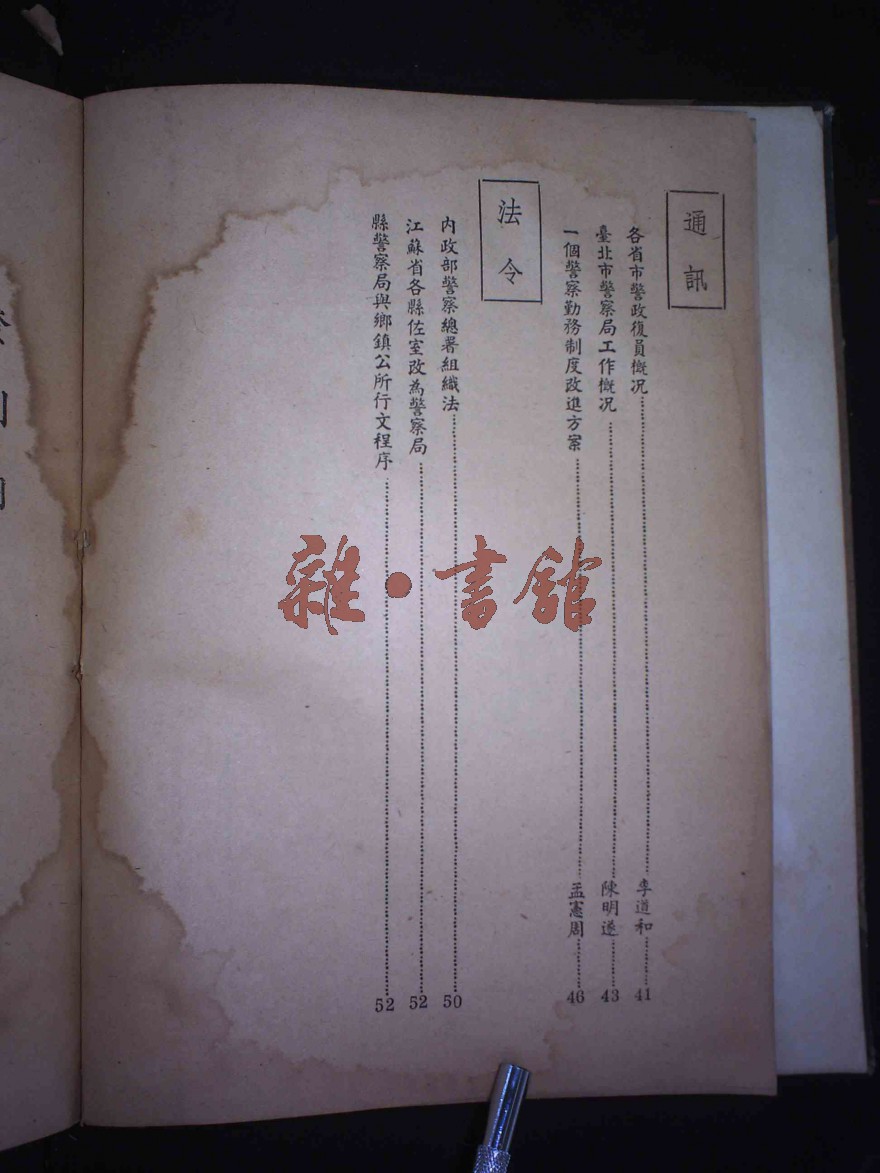 通訊
各省市警政復員概況 李道和 41
臺北市警察局工作概況 陳明遂 43
一個警察勤務制度改進方案 孟憲周 46
法令
內政部警察總署組織法 50
江蘇省各縣佐室改為警察局 52
縣警察局與鄉鎮公所行文程序 52
雜·書館